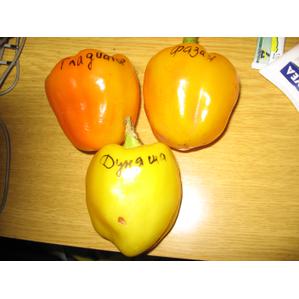 Гладиатор
Фазан
Дуняша